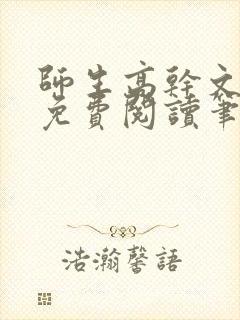 師生高幹文
免費閱讀筆
浩瀚馨語